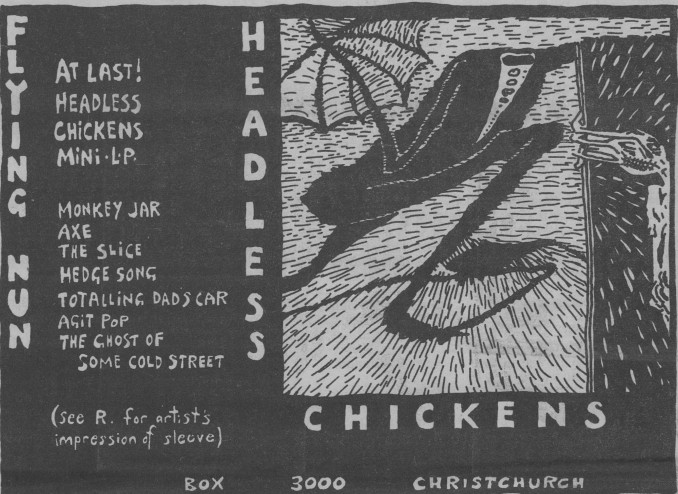 FLYING NUN
AT LAST!
HEADLESS
CHICKENS
MINI·L·P.
MONKEY JAR
AXE
THE SLICE
HEDGE SONG
TOTALLING DAD'S CAR
AGIT POP
THE GHOST OF
SOME COLD STREET
(see R. for artist's
impression of sleeve)
HEADLESS
CHICKENS
BOX 3000 CHRISTCHURCH